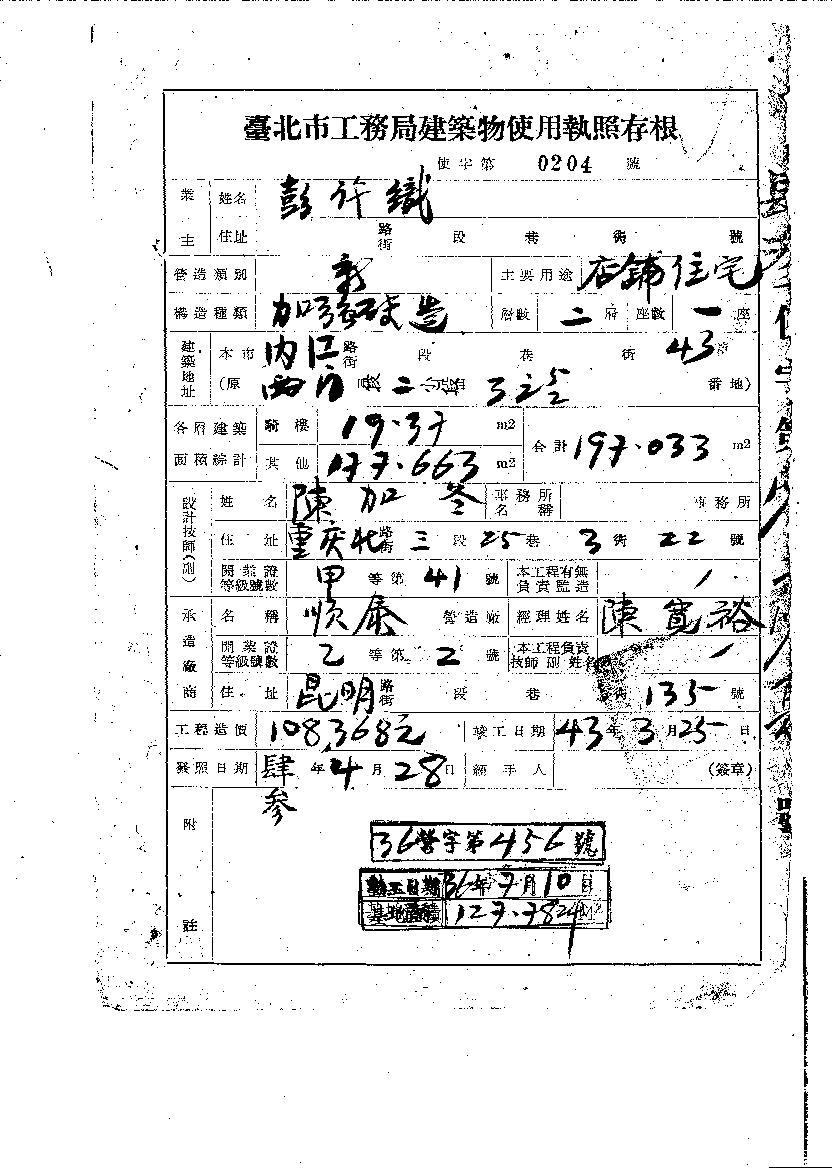 臺北市工務局建築物使用執照存根
使字第 0204 號
業主 姓名 彭許織
住址 路街 段 巷 街 號
營造類別 新 主要用途 店鋪住宅
構造種類 加強磚造 層數 二層 座數 一座
建築地址 本市 內江路街 段 巷 街 43號
(原 西門 段二小段 3之5 番地)
各層建築面積綜計 騎樓 19.37 m2 合計 197.033 m2
其他 177.663 m2
設計技師(副) 姓名 陳加 事務所名稱 事務所
住址 重庆北路街 三段 25巷 3街 22號
開業證等級號數 甲等第 41 號 本工程有無負責監造 /
承造廠商 名稱 順 營造廠 經理姓名 陳寬裕
開業證等級號數 乙等第 2 號 本工程負責技師副姓名 /
住址 昆明路街 段 巷 街 135號
工程造價 108,368元 竣工日期 43年 3月 25日
發照日期 肆參年 4月 28日 經手人 (簽章)
附註
36營字第456號
動工日期 36年7月10日
基地面積 127.7824